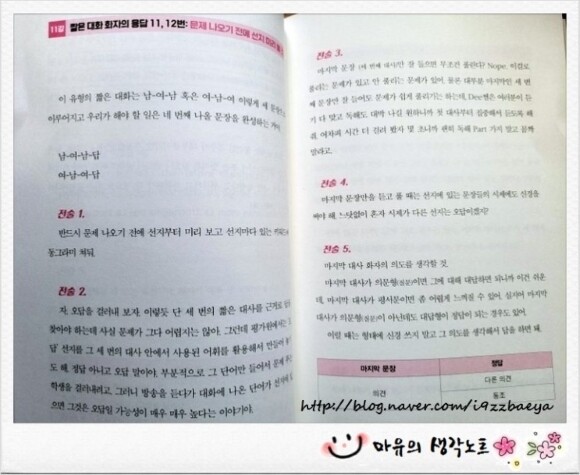 11강 짧은 대화 화자의 응답 11, 12번: 문제 나오기 전에 선지 미리
이 유형의 짧은 대화는 남-여-남 혹은 여-남-여 이렇게 세 문장으로
이루어지고 우리가 해야 할 일은 네 번째 나올 문장을 완성하는 거야.
남-여-남-답
여-남-여-답
전술 1.
반드시 문제 나오기 전에 선지부터 미리 보고 선지마다 있는
동그라미 쳐둬.
전술 2.
자, 오답을 걸러내 보자. 이렇듯 단 세 번의 짧은 대사를 근거로
찾아야 하는데 사실 문제가 그다 어렵지는 않아. 그런데 평가원에서는
선지를 그 세 번의 대사 안에서 사용된 어휘를 활용해서 만들어
도 해. 정답 아니고 오답 말이야. 부분적으로 그 단어만 들어서 문제
학생을 걸러내려고. 그러니 방송을 듣다가 대화에 나온 단어가 선지에
으면 그것은 오답일 가능성이 매우 매우 높다는 이야기야.
전술 3.
마지막 문장(세 번째 대사)만 잘 들으면 무조건 풀린다? Nope. 이걸로
풀리는 문제가 있고 안 풀리는 문제가 있어. 물론 대부분 마지막인 세 번
째 문장만 잘 들어도 문제가 쉽게 풀리기는 하는데, Dee쌤은 여러분이 듣
기 다 맞고 독해도 대박 나길 원하니까 첫 대사부터 집중해서 듣도록 해
줘. 여차의 시간 더 걸려 봤자 몇 초니까 괜히 독해 Part 가지 말고 꼼짝
말라고.
전술 4.
마지막 문장만을 듣고 풀 때는 선지에 있는 문장들의 시제에도 신경을
써야 해. 느닷없이 혼자 시제가 다른 선지는 오답이겠지?
전술 5.
마지막 대사 화자의 의도를 생각할 것.
마지막 대사가 의문형(질문)이면 그에 대해 대답하면 되니까 이건 쉬운
데, 마지막 대사가 평서문이면 좀 어렵게 느껴질 수 있어. 심지어 마지막
대사가 의문형(질문)이 아닌데도 대답형이 정답이 되는 경우도 있어.
이럴 때는 형태에 신경 쓰지 말고 그 의도를 생각해서 답을 하면 돼.
마지막 문장 정답
의견 다른 의견
동조
http://blog.naver.com/i9zzbaeya
마유의 생각노트